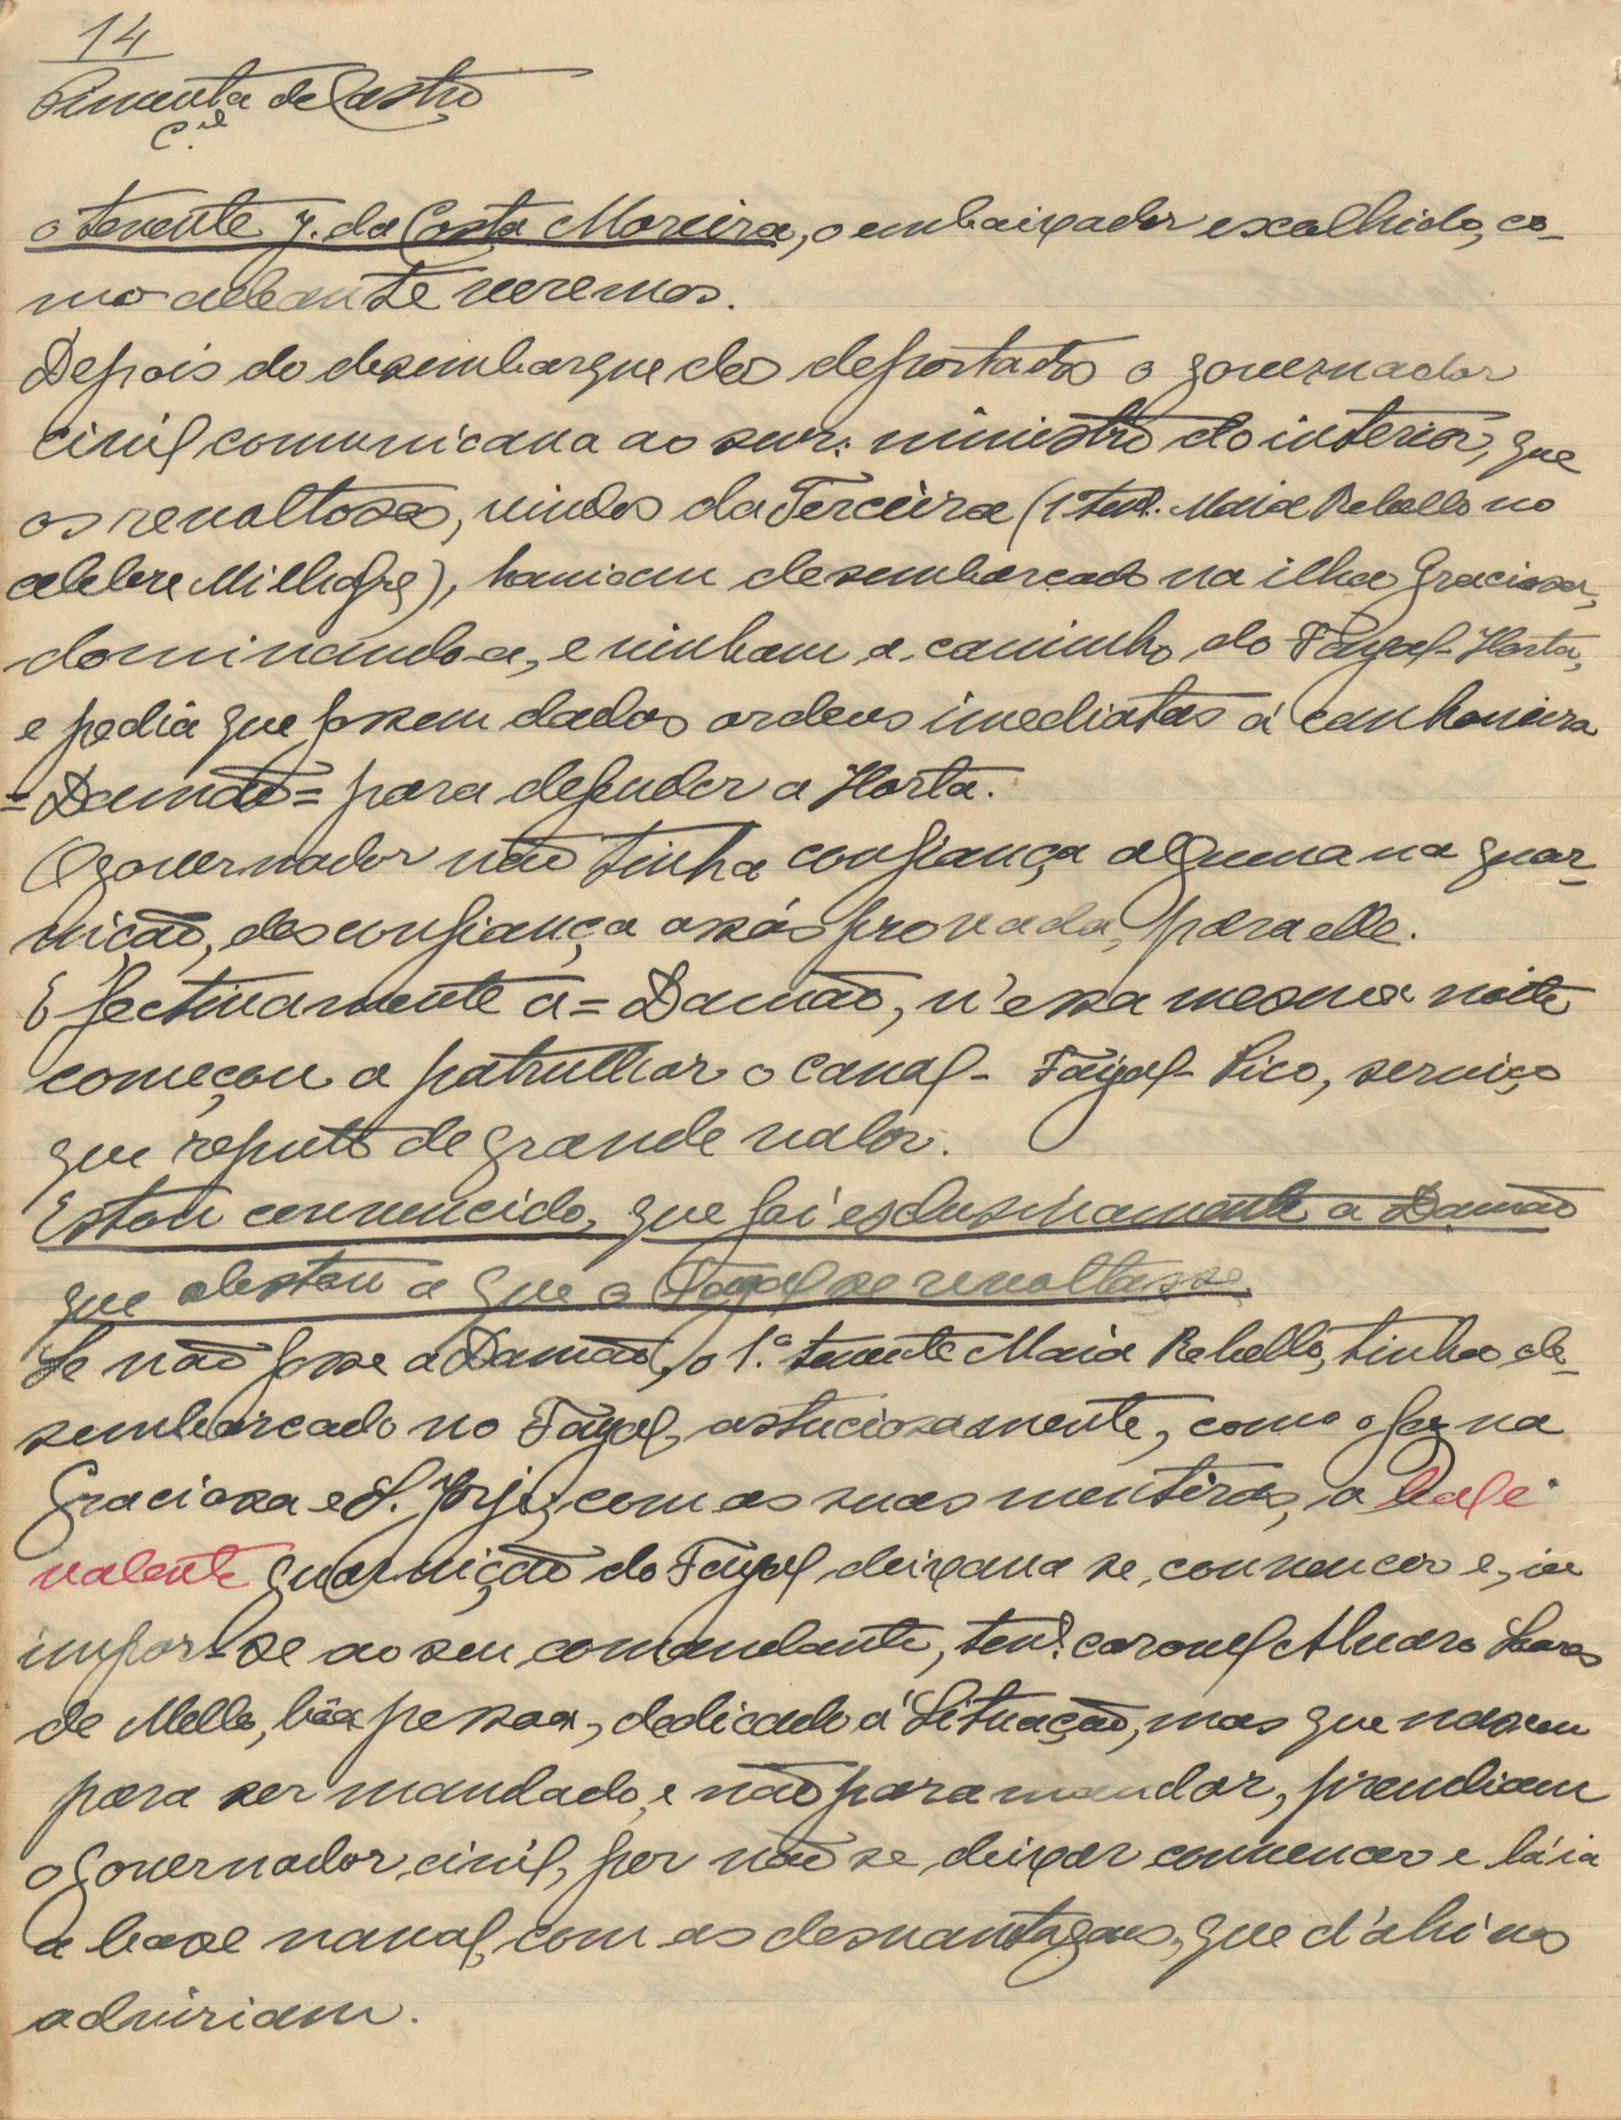 14
Pimenta de Castro
C.el
o tenente J. da Costa Moreira, o embaixador escolhido, co-
mo adeante veremos.
Depois do desembarque dos deportados o governador
civil comunicava ao snr. ministro do interior, que
os revoltosos, vindos da Terceira (1º ten. Maia Rebello no
celebre Milhafre), haviam desembarcado na ilha Graciosa,
dominando-a, e vinham a caminho do Fayal-Horta,
e pedia que fossem dadas ordens imediatas á canhoneira
=Damão= para defender a Horta.
O governador não tinha confiança alguma na guar-
nição, desconfiança assás provada, para elle.
Efectivamente a=Damão, n'essa mesma noite
começou a patrulhar o canal- Fayal- Pico, serviço
que reputo de grande valor.
Estou convencido, que foi esclusivamente a Damão
que obstou a que o Fayal se revoltasse.
Se não fosse a Damão, o 1.º tenente Maia Rebello, tinha de-
sembarcado no Fayal, astuciosamente, como o fez na
Graciosa e S. Jorje, com as suas mentiras, a leal e
valente guarnição do Fayal deixava se convencer e, ia
impor-se ao seu comandante, ten.e coronel Alvaro Soares
de Mello, bôa pessoa, dedicado á Situação, mas que nasceu
para ser mandado, e não para mandar, prendiam
o governador civil, por não se deixar convencer e lá ia
a base naval, com as desvantagens, que d'ahi nos
adviriam.